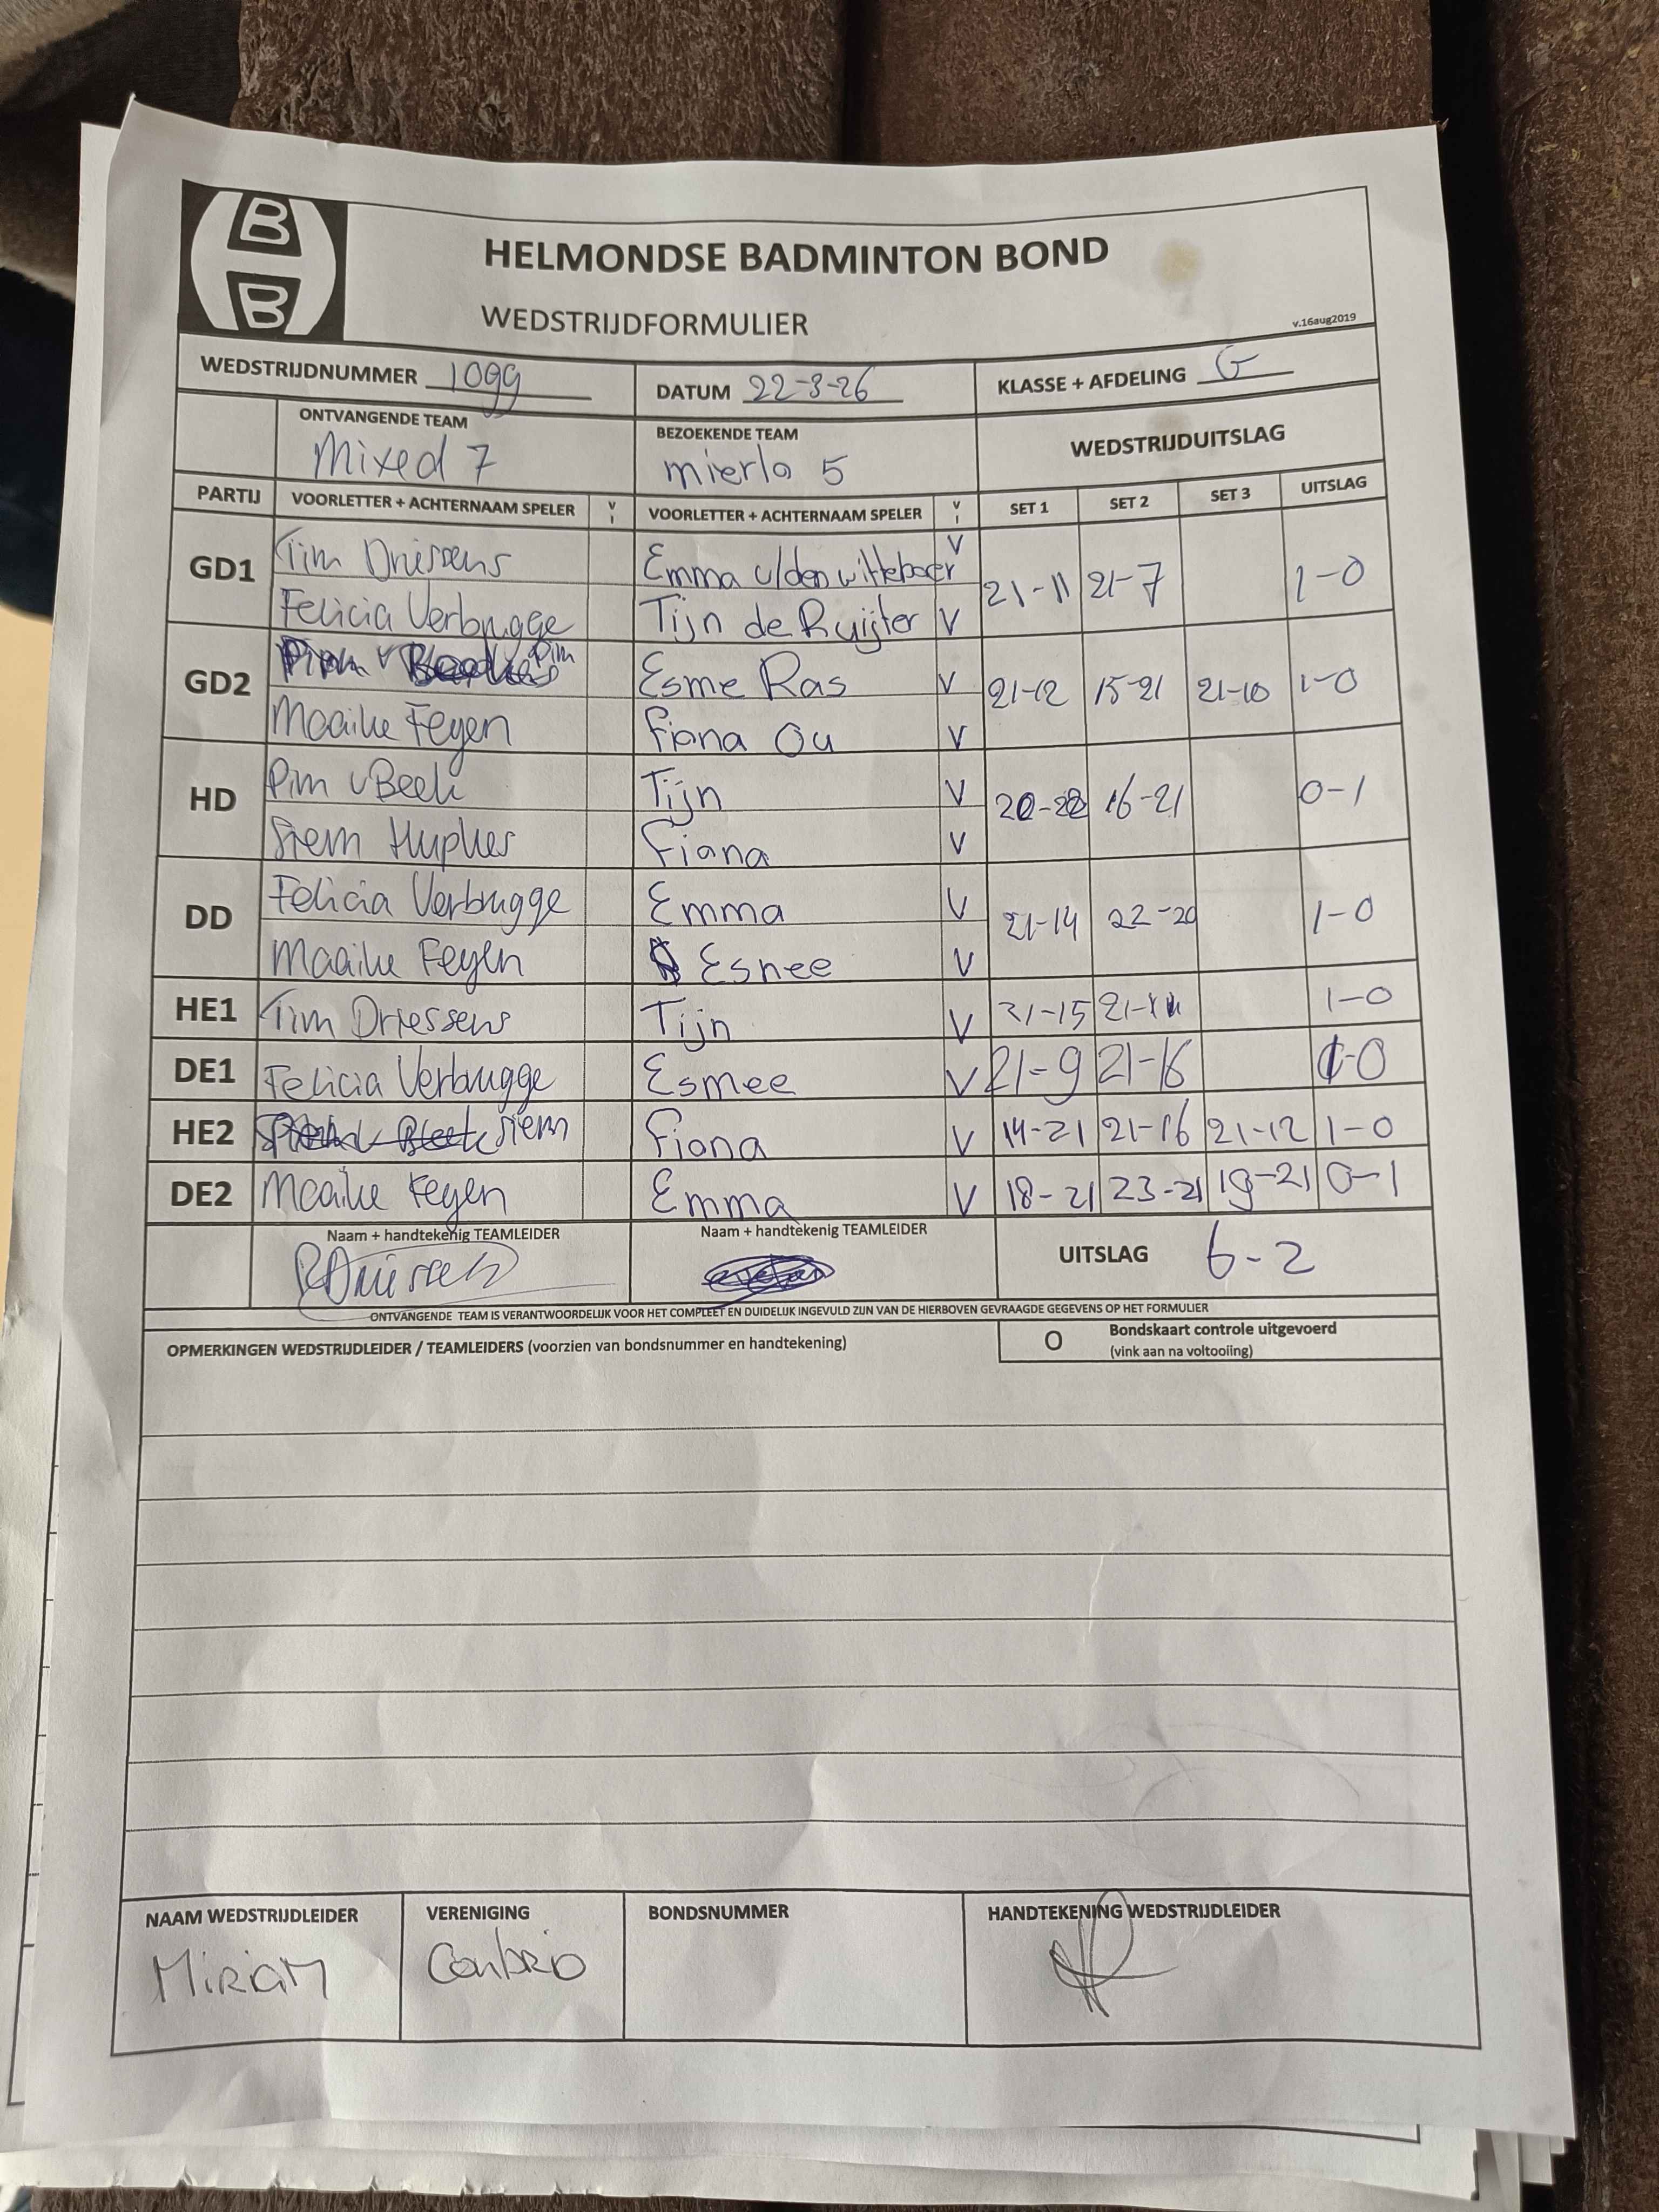 B
B
HELMONDSE BADMINTON BOND
WEDSTRIJDFORMULIER
v.16aug2019
WEDSTRIJDNUMMER 1099 DATUM 22-3-26 KLASSE + AFDELING G
ONTVANGENDE TEAM BEZOEKENDE TEAM WEDSTRIJDUITSLAG
Mixed 7 mierlo 5
PARTIJ VOORLETTER + ACHTERNAAM SPELER V I VOORLETTER + ACHTERNAAM SPELER V I SET 1 SET 2 SET 3 UITSLAG
GD1 Tim Driessens Emma v/den witteboer V 21-11 21-7 1-0
Felicia Verbrugge Tijn de Ruijter V
GD2 Pim Esme Ras V 21-12 15-21 21-10 1-0
Maaike Feyen Fiona Ou V
HD Pim v Beek Tijn V 20-22 16-21 0-1
Siem Fiona V
DD Felicia Verbrugge Emma V 21-14 22-20 1-0
Maaike Feyen Esnee V
HE1 Tim Driessens Tijn V 21-15 21- 1-0
DE1 Felicia Verbrugge Esmee V 21-9 21-16 1-0
HE2 Siem Fiona V 14-21 21-16 21-12 1-0
DE2 Maaike Feyen Emma V 18-21 23-21 19-21 0-1
Naam + handtekenig TEAMLEIDER Naam + handtekenig TEAMLEIDER UITSLAG 6-2
ONTVANGENDE TEAM IS VERANTWOORDELIJK VOOR HET COMPLEET EN DUIDELIJK INGEVULD ZIJN VAN DE HIERBOVEN GEVRAAGDE GEGEVENS OP HET FORMULIER
OPMERKINGEN WEDSTRIJDLEIDER / TEAMLEIDERS (voorzien van bondsnummer en handtekening) O Bondskaart controle uitgevoerd
(vink aan na voltooiing)
NAAM WEDSTRIJDLEIDER VERENIGING BONDSNUMMER HANDTEKENING WEDSTRIJDLEIDER
MiRiaM Conbrio